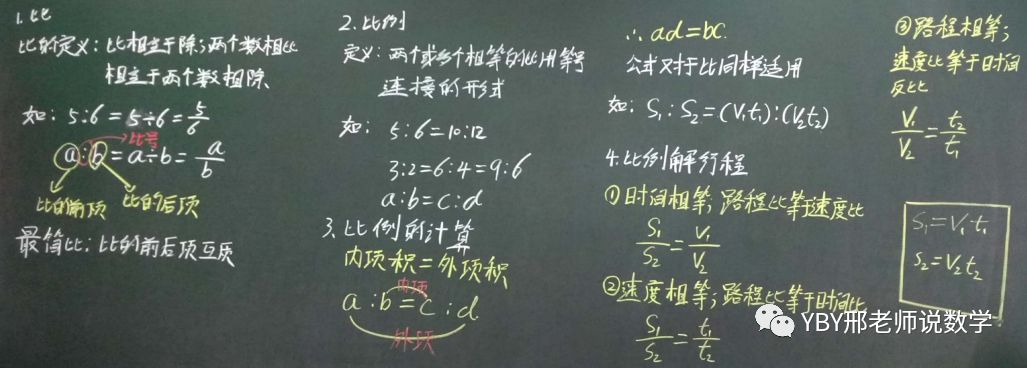 1.比
比的定义:比相当于除;两个数相比
相当于两个数相除
如: 5:6=5÷6=5/6
比号
a:b=a÷b=a/b
比的前项 比的后项
最简比:比的前后项互质
2.比例
定义:两个或多个相等的比用等号
连接的形式
如: 5:6=10:12
3:2=6:4=9:6
a:b=c:d
3.比例的计算
内项积=外项积
内项
a:b=c:d
外项
∴ad=bc
公式对于比同样适用
如: S₁:S₂=(V₁t₁):(V₂t₂)
4.比例解行程
①时间相等;路程比等于速度比
S₁/S₂=V₁/V₂
②速度相等;路程比等于时间比
S₁/S₂=t₁/t₂
③路程相等;
速度比等于时间
反比
V₁/V₂=t₂/t₁
S₁=V₁t₁
S₂=V₂t₂
YBY邢老师说数学